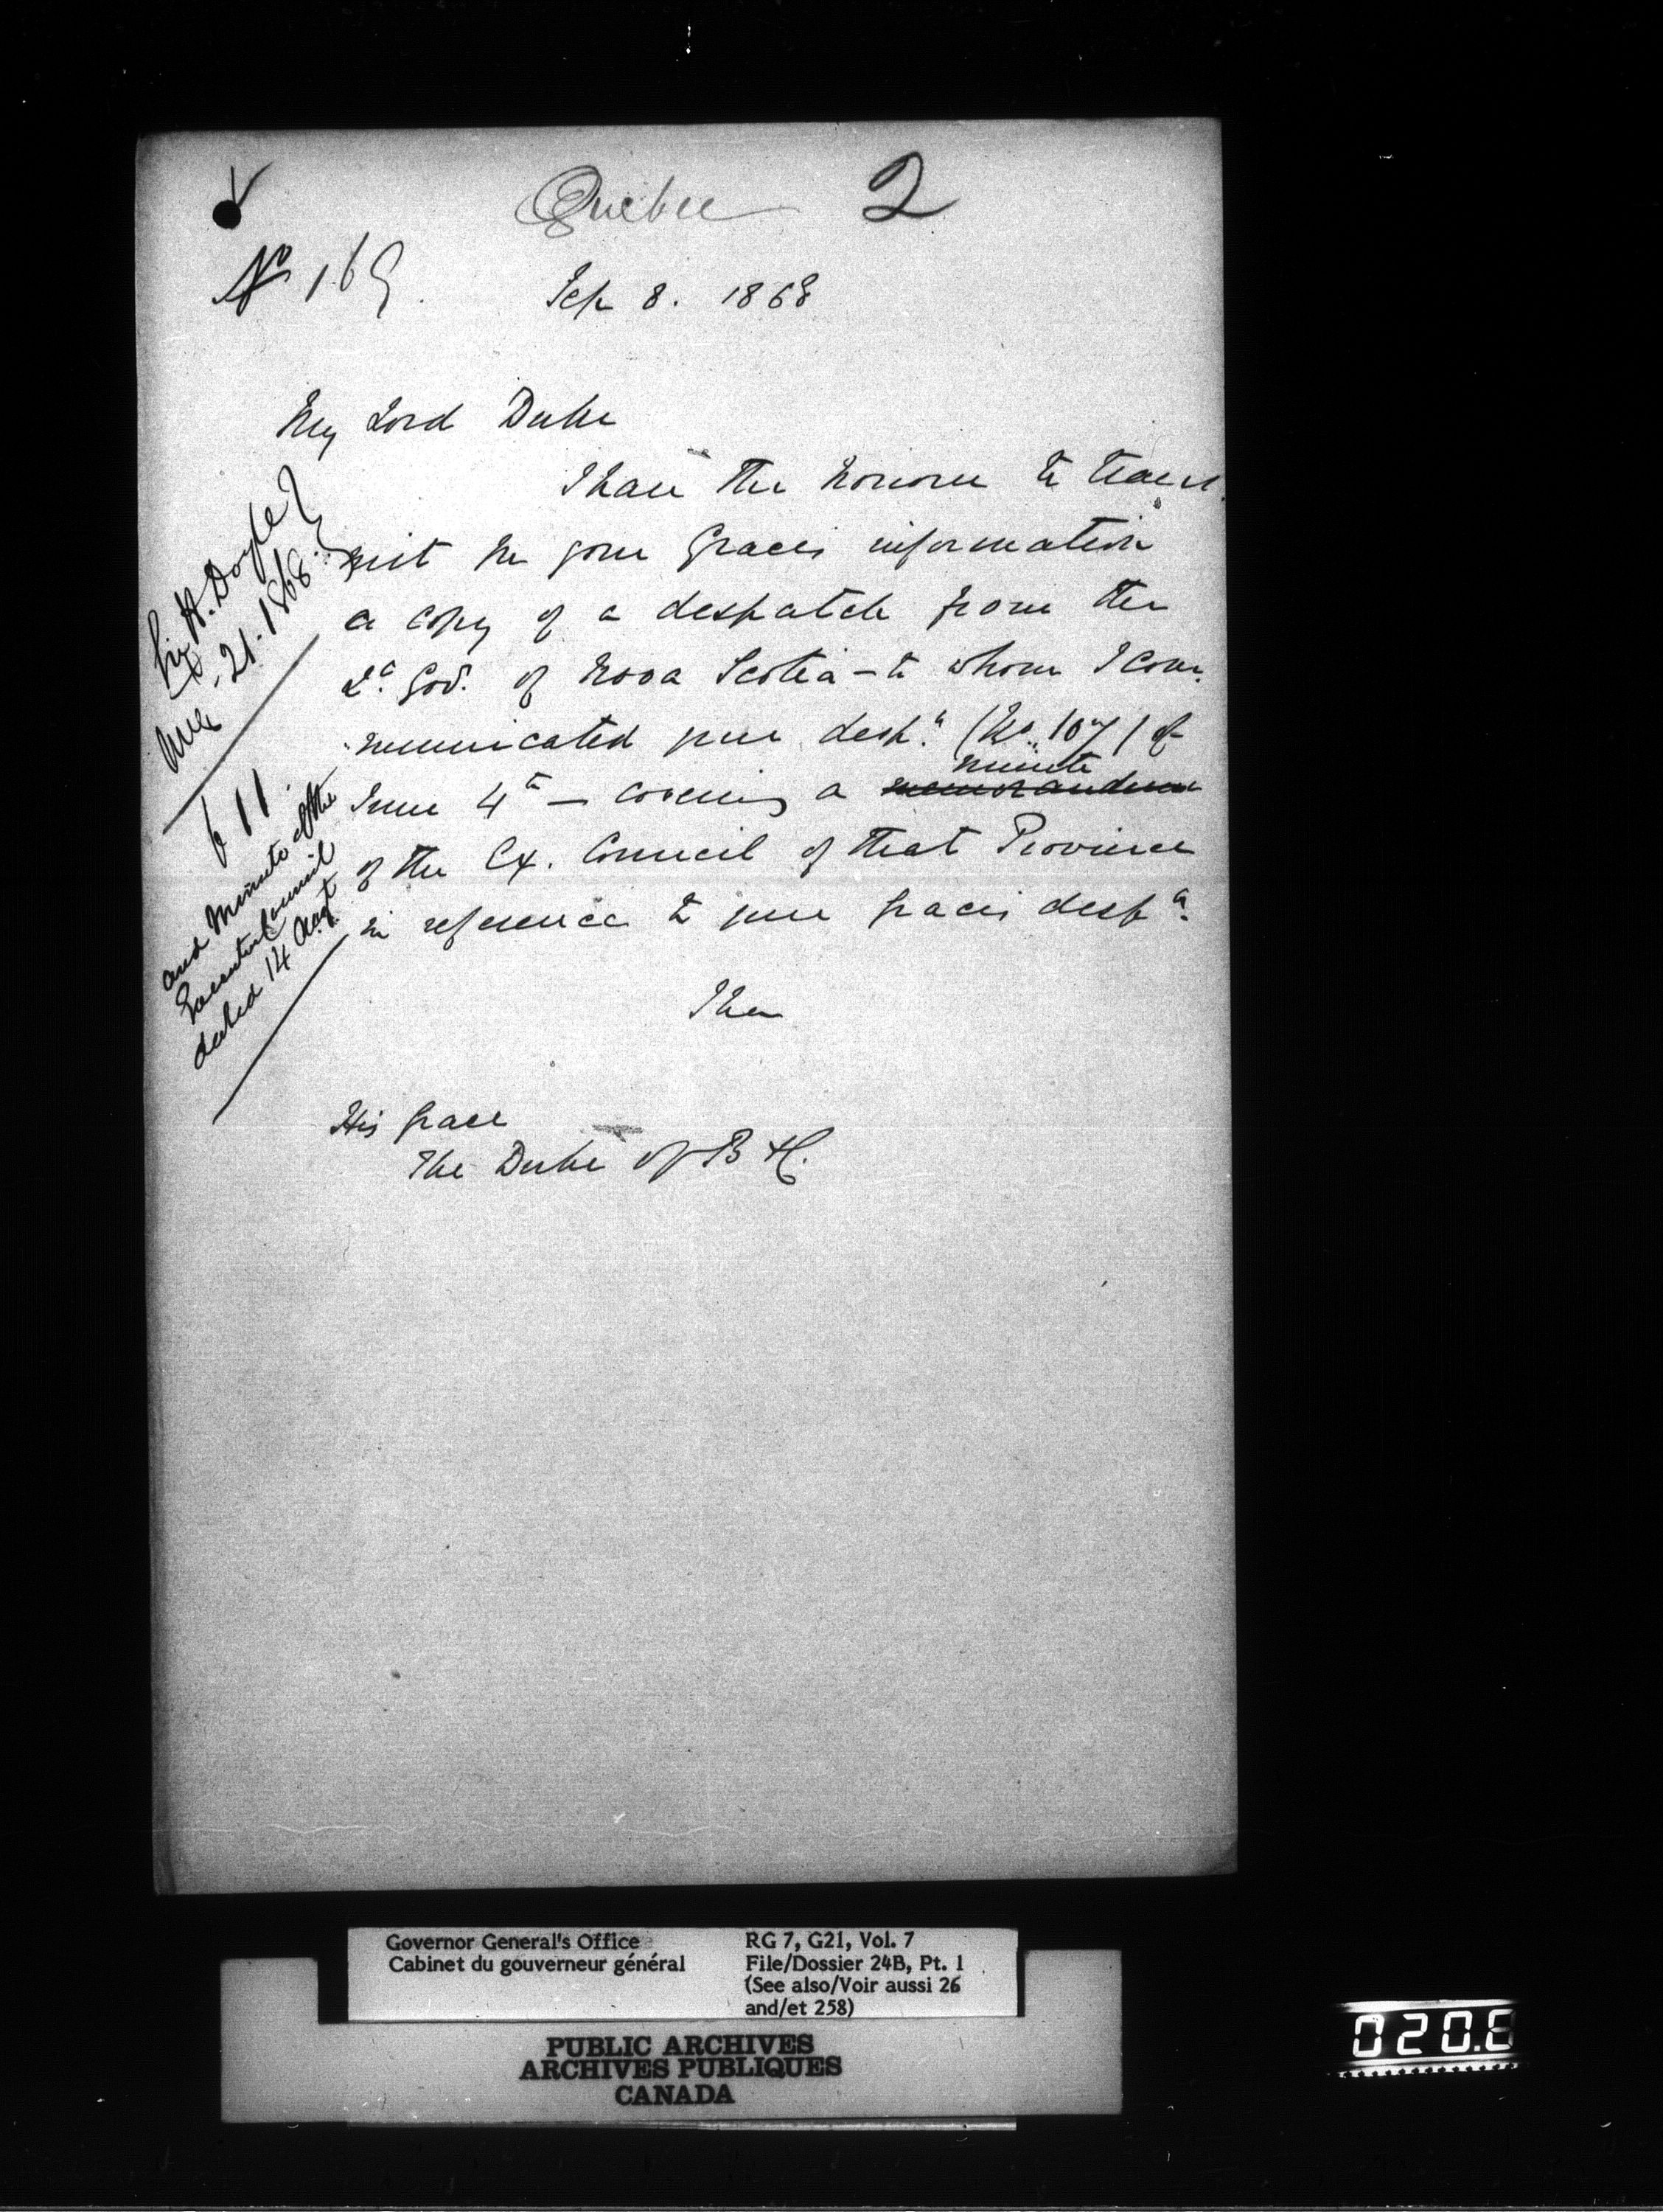 Quebec 2
No 169.
Sep 8. 1868
My Lord Duke
I have the honour to trans-
mit for your Graces information
a copy of a despatch from the
Lt. Gov. of Nova Scotia - to whom I com-
municated your desph. (No. 107) of
June 4th - covering a minute memorandum
of the Ex. Council of that Province
in reference to your Graces desph.
I have
His Grace
The Duke of B & C.
Sir H. Doyle
Aug. 21. 1868.
611
and Minute of the
Executive Council
dated 14 Augt
Governor General's Office
Cabinet du gouverneur général
RG 7, G21, Vol. 7
File/Dossier 24B, Pt. 1
(See also/Voir aussi 26
and/et 258)
PUBLIC ARCHIVES
ARCHIVES PUBLIQUES
CANADA
020.6